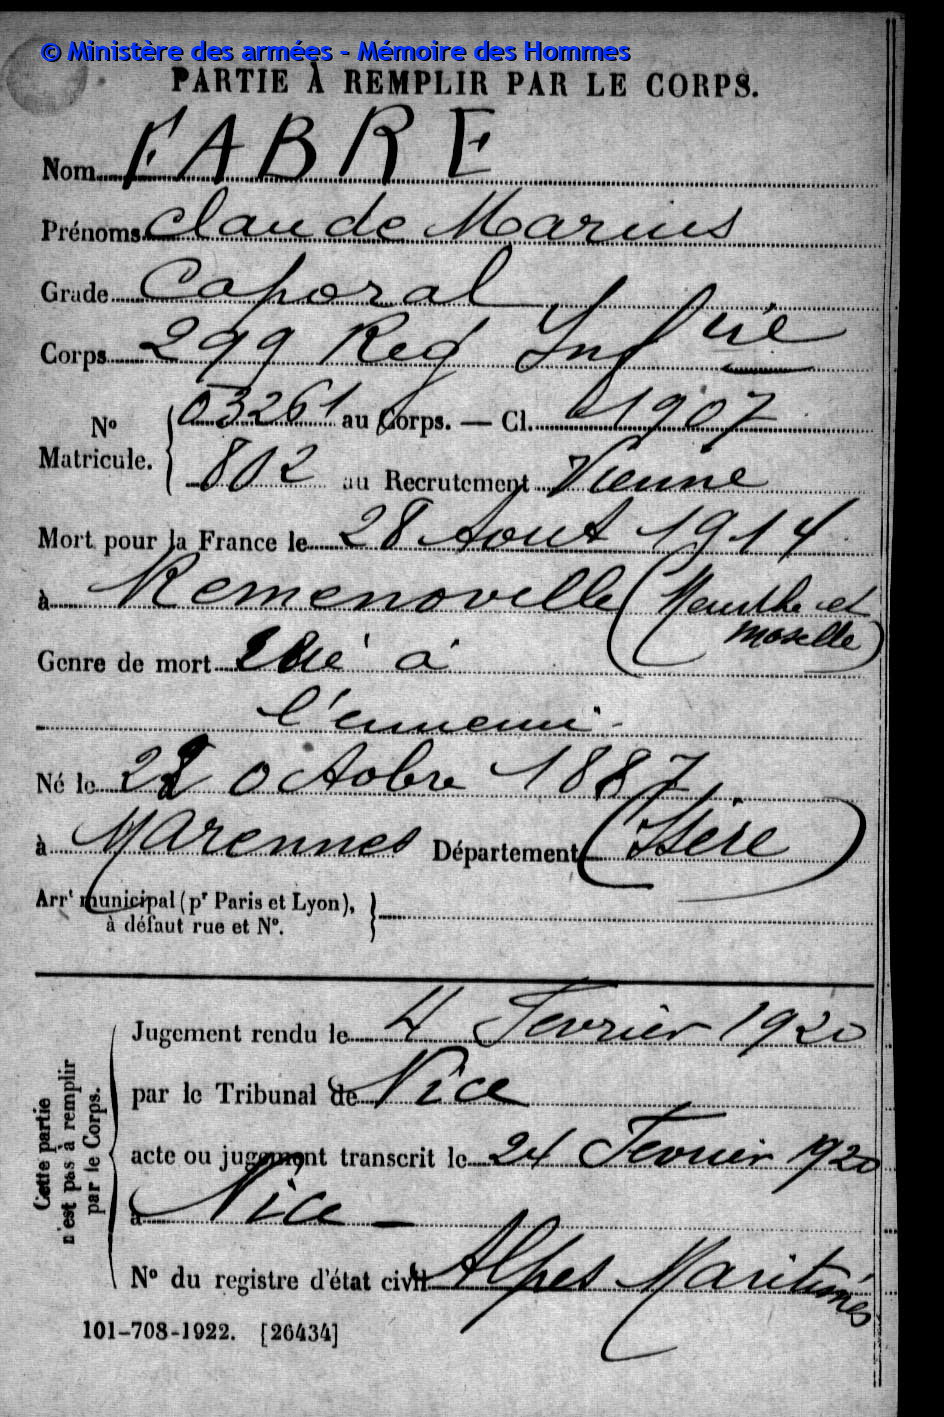 © Ministère des armées - Mémoire des Hommes
PARTIE À REMPLIR PAR LE CORPS.
Nom FABRE
Prénoms Claude Marius
Grade Caporal
Corps 299 Reg Inf rie
No Matricule. 03261 au Corps. — Cl. 1907
802 au Recrutement Vienne
Mort pour la France le 28 Aout 1914
à Remenoville (Meurthe et
moselle)
Genre de mort Tué à
l'ennemi -
Né le Octobre 1887
à Marennes Département (Isère)
Arrt municipal (pr Paris et Lyon),
à défaut rue et No.
Cette partie
n'est pas à remplir
par le Corps.
Jugement rendu le 4 Fevrier 1920
par le Tribunal de Nice
acte ou jugement transcrit le 24 Fevrier 1920
à Nice —
No du registre d'état civil Alpes Maritimes
101-708-1922. [26434]